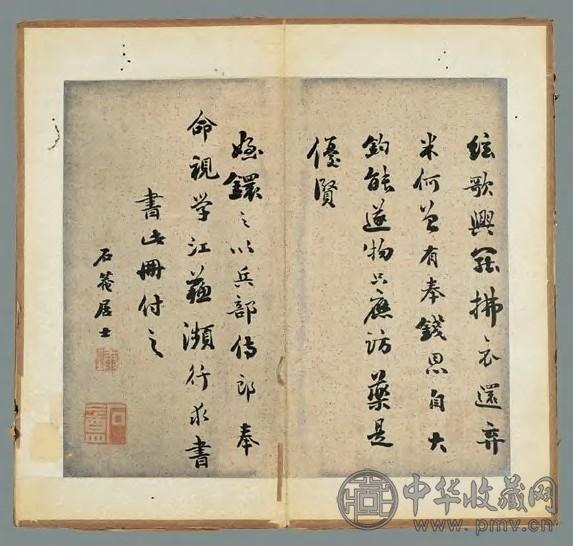 絃歌興罷拂衣還弃
米何曾有奉錢恩自大
鈞能遂物只應訪藥是
優賢
姪鐶之以兵部侍郎奉
命視學江蘇瀕行求書
書此冊付之
石菴居士
中华收藏网
www.pmv.cn